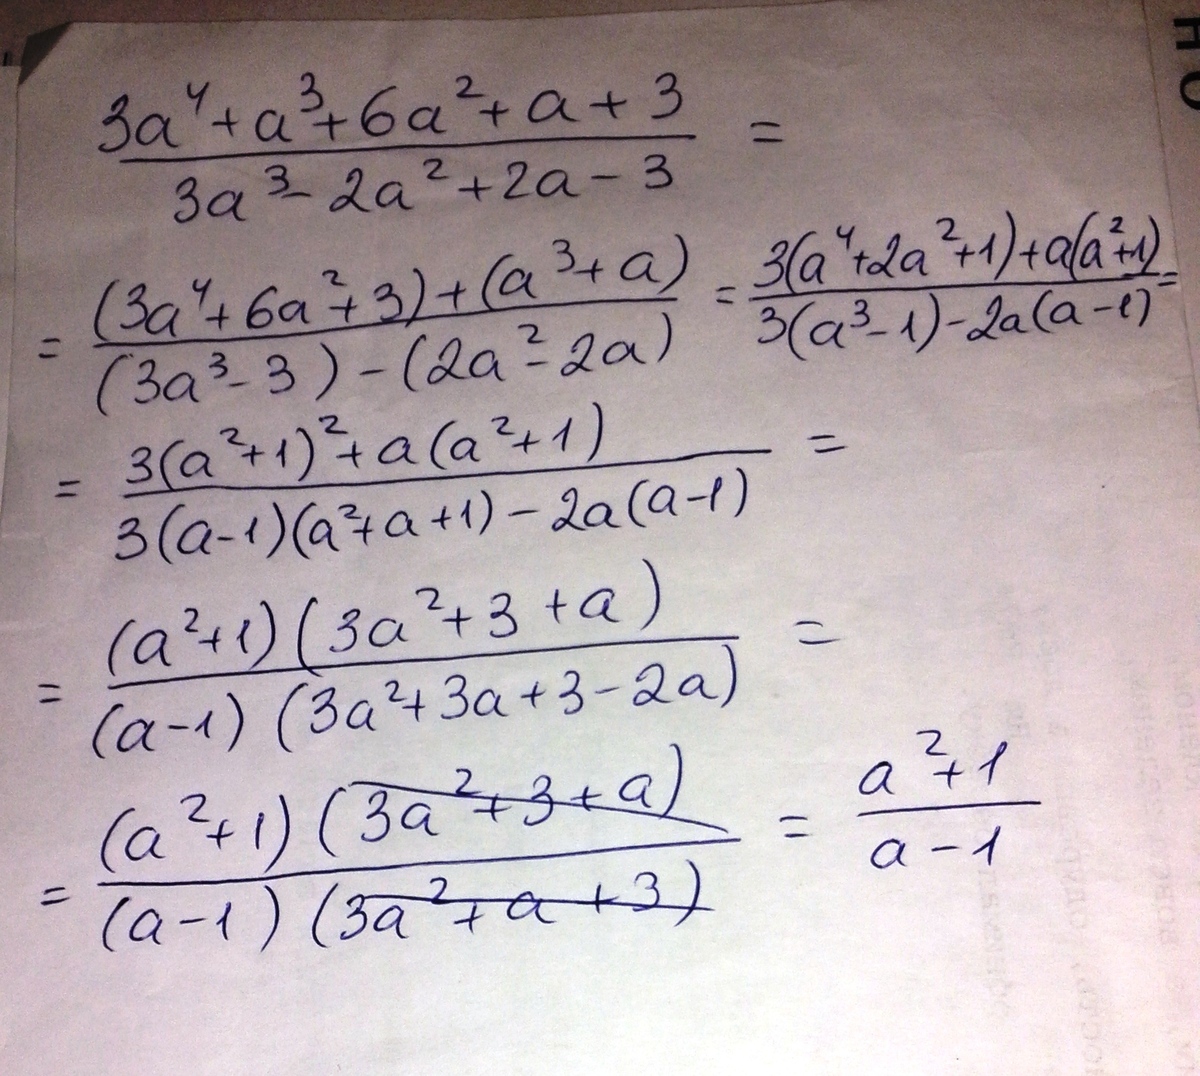 (3a⁴ + a³ + 6a² + a + 3) / (3a³ - 2a² + 2a - 3) =
= ((3a⁴ + 6a² + 3) + (a³ + a)) / ((3a³ - 3) - (2a² - 2a)) = (3(a⁴ + 2a² + 1) + a(a² + 1)) / (3(a³ - 1) - 2a(a - 1)) =
= (3(a² + 1)² + a(a² + 1)) / (3(a - 1)(a² + a + 1) - 2a(a - 1)) =
= ((a² + 1)(3a² + 3 + a)) / ((a - 1)(3a² + 3a + 3 - 2a)) =
= ((a² + 1)(3a² + 3 + a)) / ((a - 1)(3a² + a + 3)) = (a² + 1) / (a - 1)
Н О